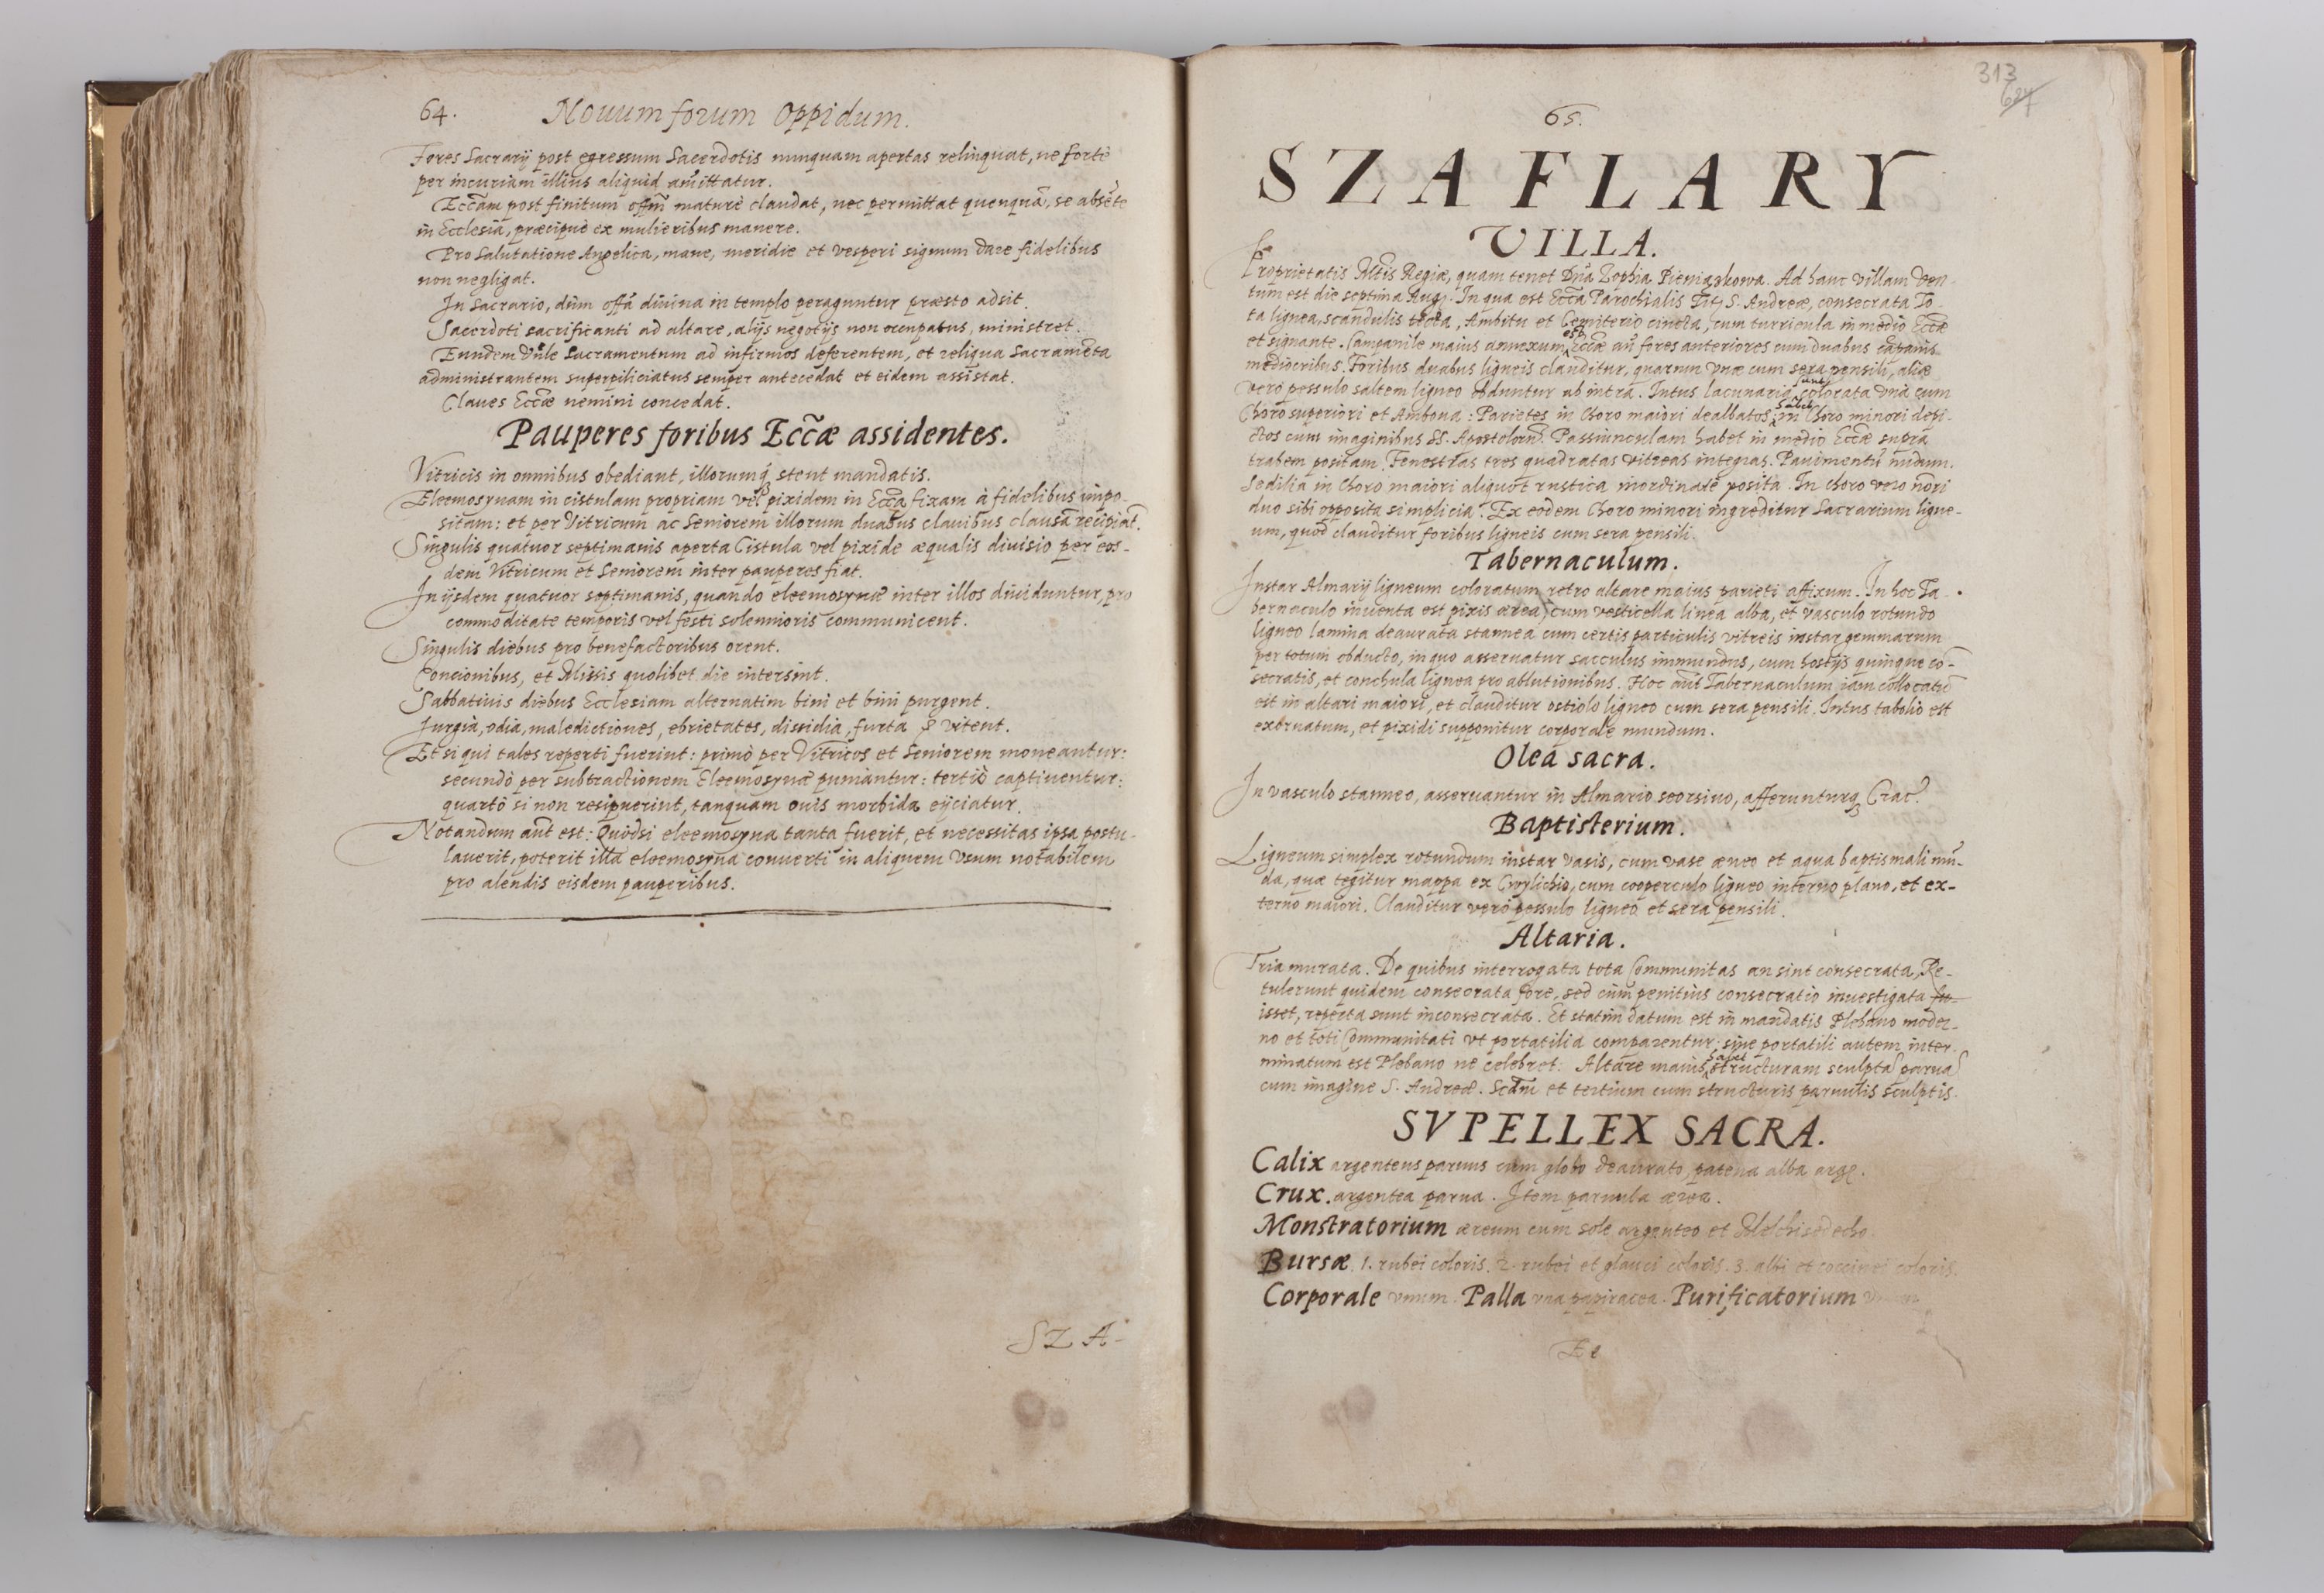 64. Nouum forum Oppidum.
Fores Sacrarij post egressum Sacerdotis nunquam apertas relinquat, ne fortè
per incuriam illius aliquid amittatur.
Eccãm post finitum offm̃ maturè claudat, nec permittat quenquã, se absẽte
in Ecclesia, præcipuè ex mulieribus manere.
Pro Salutatione Angelica, mane, meridie et vesperi signum dare fidelibus
non negligat.
In Sacrario, dum offã diuina in templo peraguntur præsto adsit.
Sacerdoti sacrificanti ad altare, alijs negotijs non occupatus, ministret.
Eundem Vñle Sacramentum ad infirmos deferentem, et reliqua Sacramẽta
administrantem superpiliciatus semper antecedat et eidem assistat.
Claues Eccæ̃ nemini concedat.
Pauperes foribus Eccæ̃ assidentes.
Vitricis in omnibus obediant, illorumq́ȝ stent mandatis.
Eleemosynam in cistulam propriam vel pixidem in Eccã fixam à fidelibus impo-
sitam: et per Vitricum ac Seniorem illorum duabus clauibus clausã recipiãt.
Singulis quatuor septimanis aperta Cistula vel pixide æqualis diuisio per eos-
dem Vitricum et Seniorem inter pauperes fiat.
In ijsdem quatuor septimanis, quando eleemosynæ inter illos diuiduntur, pro
commoditate temporis vel festi solennioris communicent.
Singulis diebus pro benefactoribus orent.
Concionibus, et Missis quolibet die intersint.
Sabbatinis diebus Ecclesiam alternatim bini et bini purgent.
Iurgia, odia, maledictiones, ebrietates, dissidia, furta & vitent.
Et si qui tales reperti fuerint: primò per Vitricos et Seniorem moneantur:
secundò per subtractionem Eleemosynæ puniantur: tertiò captiuentur:
quartò si non resipuerint, tanquam ouis morbida eijciatur.
Notandum aũt est: Quòdsi eleemosyna tanta fuerit, et necessitas ipsa postu-
lauerit, poterit illa eleemosyna conuerti in aliquem vsum notabilem
pro alendis eisdem pauperibus.
SZA-
313
65.
SZAFLARY
VILLA.
Proprietatis Mtis Regiæ, quam tenet Dña Zophia Pieniążkowa. Ad hanc villam ven
tum est die septima Augi. In qua est Eccã Parochialis Titi S. Andreæ, consecrata To-
ta lignea, scandulis tecta, Ambitu et Cemiterio cincta, cum turricula in medio Eccæ̃
et signante. Campanile maius annexum est Eccæ̃ añ fores anteriores cum duabus cãpanis
mediocribus. Foribus duabus ligneis clauditur, quarum vnæ cum sera pensili, aliæ
verò pessulo saltem ligneo obduntur ab intra. Intus lacunaria sunt colorata vnà cum
Choro superiori et Ambona: Parietes in Choro maiori dealbatos, in Choro minori depi-
ctos cum imaginibus SS. Apostolorũ. Passiunculam habet in medio Eccæ̃ supra
trabem positam. Fenestras tres quadratas vitreas integras. Pauimentũ nudum.
Sedilia in Choro maiori aliquot rustica inordinatè posita. In choro vero mõri
duo sibi opposita simplicia. Ex eodem Choro minori ingreditur Sacrarium ligne-
um, quod clauditur foribus ligneis cum sera pensili.
Tabernaculum.
Instar Almarij ligneum coloratum retro altare maius parieti affixum. In hoc Ta-
bernaculo inuenta est pixis ærea, cum vesticella linea alba, et vasculo rotundo
ligneo lamina deaurata stannea cum certis particulis vitreis instar gemmarum
per totum obducto, in quo asseruatur sacculus immundus, cum hostijs quinque cõ-
secratis, et conchula lignea pro ablutionibus. Hoc aũt Tabernaculum iam collocatũ
est in altari maiori, et clauditur ostiolo ligneo cum sera pensili. Intus tabolio est
exornatum, et pixidi supponitur corporale mundum.
Olea sacra.
In vasculo stanneo, asseruantur in Almario seorsiuo, afferunturqȝ Crac.
Baptisterium.
Ligneum simplex rotundum instar vasis, cum vase æneo et aqua baptismali mũ-
da, quæ tegitur mappa ex Cwylichio, cum cooperculo ligneo interno plano, et ex-
terno maiori. Clauditur verò pessulo ligneo et sera pensili.
Altaria.
Tria murata. De quibus interrogata tota Communitas an sint consecrata, Re-
tulerunt quidem consecrata fore, sed cùm penitius consecratio inuestigata fu-
isset, reperta sunt inconsecrata. Et statim datum est in mandatis Plebano moder-
no et toti Communitati vt portatilia comparentur: sine portatili autem inter-
minatum est Plebano ne celebret: Altare maius habet structuram sculptã paruã
cum imagine S. Andreæ. Scdm̃ et tertium cum structuris paruulis sculptis.
SVPELLEX SACRA.
Calix argenteus paruus cum globo deaurato, patena alba arge.
Crux. argentea parua. Item paruula ærea.
Monstratorium æreum cum sole argenteo et Melchisedecho.
Bursæ. 1. rubei coloris. 2. rubei et glauci coloris. 3. albi et coccinei coloris.
Corporale vnum. Palla vna papiracea. Purificatorium